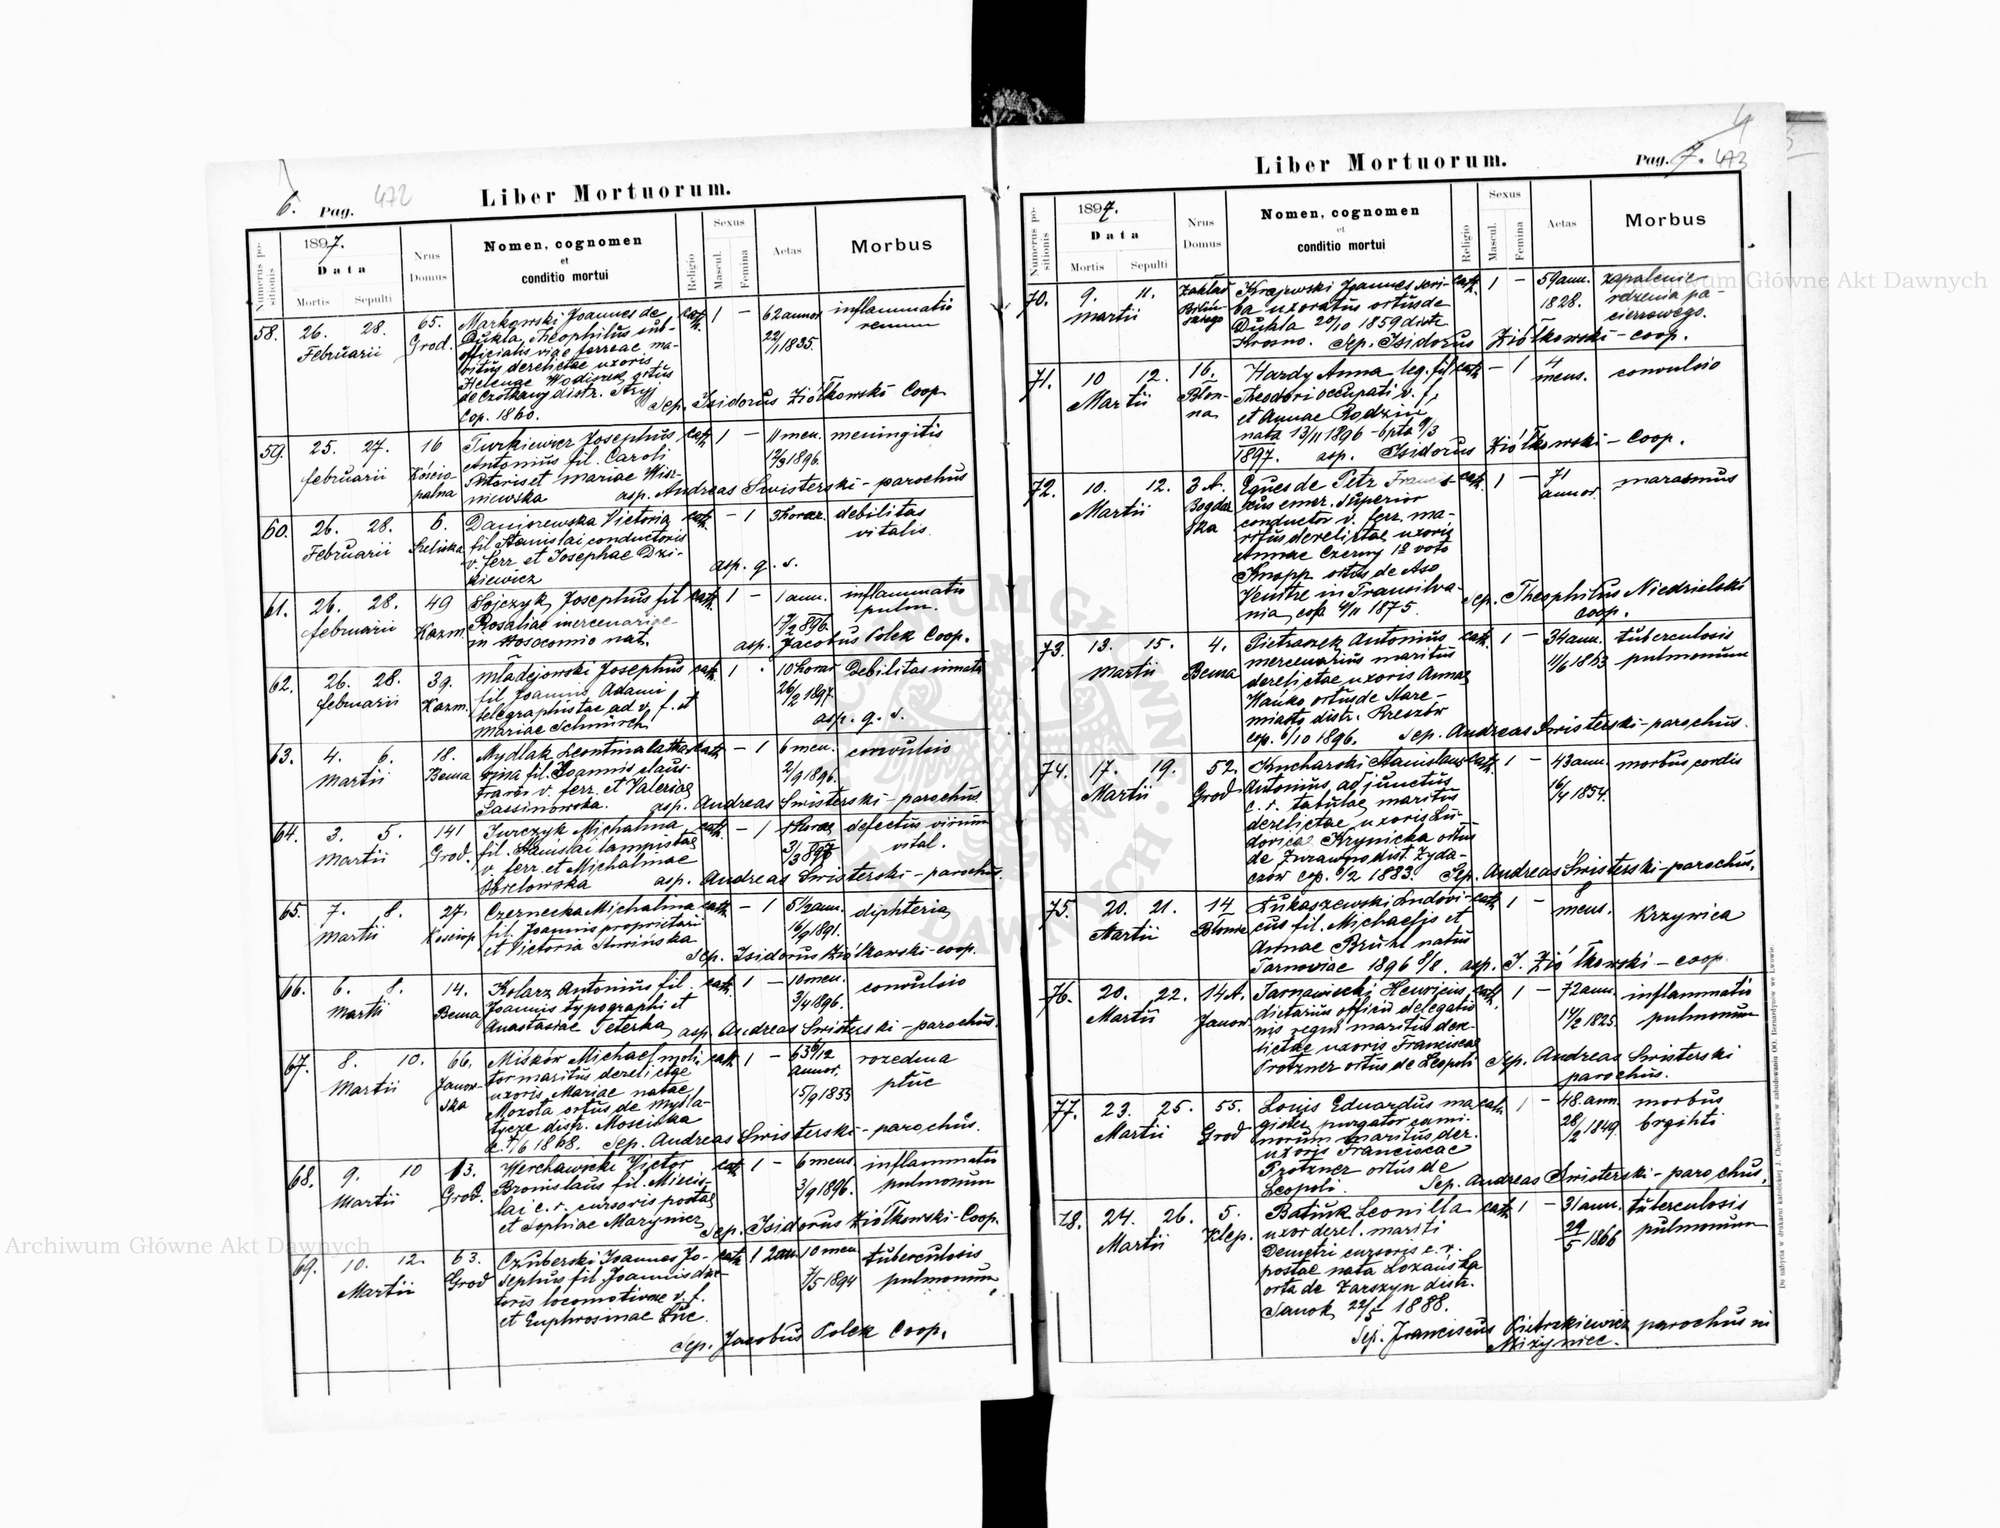 6. Pag. 472
Liber Mortuorum.
Numerus positionis
1897.
Data
Mortis Sepulti
Nrus Domus
Nomen, cognomen
et
conditio mortui
Religio
Sexus
Mascul.
Femina
Aetas
Morbus
58. 26. 28. 65. Markowski Joannes de cath. 1 – 62 annor inflammatio
Februarii Grod. Dukla, Theophilus sub- 22/1 1835. renum
officialis viae ferreae ma-
ritus derelictae uxoris
Helenae Wodiczek ortus
distr. Stryj
Cop. 1860. Sep. Isidorus Ziółkowski Coop.
59. 25. 27. 16 Turkiewicz Josephus cath. 1 – 11 men. meningitis
februarii Antonius fil. Caroli 12/3 1896.
Pistoris et Mariae Wisz-
niewska asp. Andreas Swisterski – parochus
60. 26. 28. 6. Victoria cath. – 1 3 horar. debilitas
Februarii fil Stanislai conductoris vitalis.
v. ferr et Josephae Dzi-
kiewicz asp. q. s.
61. 26. 28. 49 Sojczyk Josephus fil cath. 1 – 1 ann. inflammatio
februarii Kazm. Rosaliae mercenariae 7/2 896. pulm.
in nosocomio nat. asp. Jacobus Polek Coop.
62. 26. 28. 39. Mładejowski Josephus cath 1 10 horar Debilitas innata
februarii Kazm. fil Joannis Adami 26/2 1897.
telegraphistae ad v. f. et asp. q. s.
Mariae Schmürch
63. 4. 6. 18. Mydlak Leontina cath – 1 6 men. convulsio
Martii Bema fil. Joannis claus- 2/9 1896.
trarii v. ferr. et Valeriae
Lassinowska. asp. Andreas Swisterski – parochus.
64. 3. 5. 141 Jurczyk Michalina cath – 1 horae defectus virium
Martii Grod. fil. Stanislai lampistae 3/3 897 vital.
v. ferr. et Michalinae
asp. Andreas Swisterski – parochus.
65. 7. 8. 27. Czernecka Michalina cath – 1 5 1/2 ann. diphteria
Martii Kościop. fil. Joannis proprietarii 16/9 1891.
et Victoria
Sep. Isidorus Ziółkowski – coop.
66. 6. 8. 14. Kolarz Antonius fil. cath. 1 – 10 men. convulsio
Martii Bema Joannis typographi et 3/4 1896.
Anastasiae Peterka asp. Andreas Swisterski – parochus.
67. 8. 10. 66. Miśków Michael moli- cath 1 – 63 6/12 rozedma
Martii Janow- tor maritus derelictae annor. płuc
ska uxoris Mariae natae 15/9 1833
Mozota ortus de Mysla-
tycze distr. Mosciska
c. 7/6 1868. Sep. Andreas Swisterski – parochus.
68. 9. 10 63. Werchawiecki Victor cath. 1 – 6 mens. inflammatio
Martii Grod. Bronislaus fil. Miecis- 3/9 1896. pulmonum
lai c. r. cursoris postae
et Sophiae Sep. Isidorus Ziółkowski – Coop.
69. 10. 12. 63. Czuberski Joannes Jo- cath 1 2 ann 10 men tuberculosis
Martii Grod sephus fil Joannis duc- 7/5 1894 pulmonum
toris locomotivae v. f.
et Euphrosinae Łuc.
Sep. Jacobus Polek Coop.
Liber Mortuorum.
Pag. 7. 473
Numerus positionis
1897.
Data
Mortis Sepulti
Nrus Domus
Nomen, cognomen
et
conditio mortui
Religio
Sexus
Mascul.
Femina
Aetas
Morbus
70. 9. 11. Zakład Krajewski Joannes scri- cath. 1 – 59 ann. zapalenie
Martii Biliń- ba uxoratus ortus de 1828. rdzenia pa-
skiego Dukla 20/10 1859 distr cierzowego.
Krosno. Sep. Isidorus Ziółkowski – coop.
71. 10 12. 16. Hardy Anna leg. fil cath – 1 4 convulsio
Martii Błon- Theodori occupati v. f. mens.
na. et Annae Rodzin
nata 13/11 1896 – bpta 9/3
1897. asp. Isidorus Ziółkowski – Coop.
72. 10. 12. 3 A. Eques de Petz Francis- cath. 1 – 71 marasmus
Martii Bogda cus emer. superior annor.
ska conductor v. ferr. ma-
ritus derelictae uxoris
Annae Czerny 1o voto
Knapp ortus de Aso
Venitze in Transilva-
nia, cop. 4/11 1875. Sep. Theophilus Niedzielski
coop.
73. 13. 15. 4. Pietraszek Antonius cath. 1 – 34 ann. tuberculosis
Martii Bema mercenarius maritus 11/6 1863 pulmonum
derelictae uxoris Annae
Hańko ortus de Stare-
miasto distr. Rzeszów
cop. 6/10 1896. Sep. Andreas Swisterski – parochus.
74. 17. 19. 52. Kucharski Stanislaus cath. 1 – 43 ann. morbus cordis
Martii Grod Antonius, adjunctus 16/4 1854.
c. r. tabulae, maritus
derelictae uxoris Lu-
dovicae Krynicka ortus
de Żurawno dist. Żyda-
czów cop. 6/2 1883. Sep. Andreas Swisterski – parochus.
75. 20. 21. 14 Łukaszewski Ludovi- cath 1 – 8 Krzywica
Martii Błonie cus fil. Michaelis et mens.
Annae Brühl natus
Tarnoviae 1896 8/8. asp. I. Ziółkowski – coop.
76. 20. 22. 14 A. Tarnawiecki Henricus cath. 1 – 72 ann. inflammatio
Martii Janow. dietarius officii delegatio 14/2 1825. pulmonum
nis regni maritus dere-
lictae uxoris Franciscae
Protzner ortus de Leopoli Sep. Andreas Swisterski
parochus.
77. 23. 25. 55. Louis Eduardus ma cath. 1 – 48. ann. morbus
Martii Grod gister purgator cami- 28/2 1849. brgihti
norum maritus der.
uxoris Franciscae
Protzner ortus de
Leopoli. Sep. Andreas Swisterski – parochus.
78. 24. 26. 5. Batiuk Leonilla cath 1 – 31 ann. tuberculosis
Martii Klep. uxor derel. mariti 29/5 1866 pulmonum
Demetri cursoris c. r.
postae nata Łozańska
orta de Zarszyn distr.
Sanok 22/5 1888.
Sep. Franciscus Pietrzkiewicz parochus in
Miżyniec.
Do nabycia w drukarni katolickiej J. Chęcińskiego w zabudowaniu OO. Bernardynów we Lwowie.
Archiwum Główne Akt Dawnych
Archiwum Główne Akt Dawnych
ARCHIWUM GŁÓWNE AKT DAWNYCH